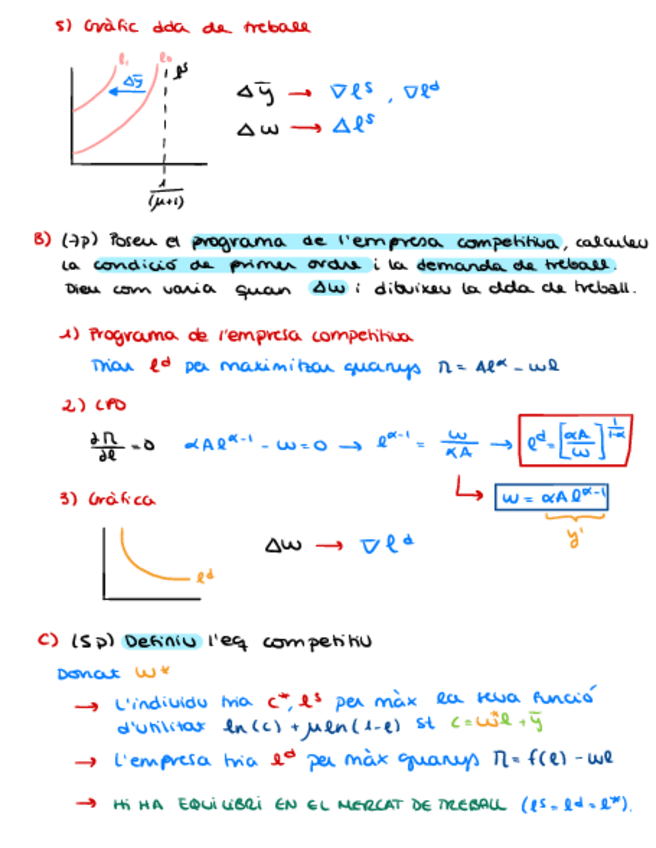 5) Gràfic dda de treball
l₁ l₀ lˢ
Δȳ
Δȳ → ∇lˢ, ∇lᵈ
Δw → Δlˢ
1/(μ+1)
B) (7p) Poseu el programa de l'empresa competitiva, calculeu
la condició de primer ordre i la demanda de treball.
Dieu com varia quan Δw i dibuixeu la dda de treball.
1) Programa de l'empresa competitiva
Triar lᵈ per maximitzar guanys Π = Alᵅ - wl
2) CPO
∂Π/∂l = 0 αAlᵅ⁻¹ - w = 0 → lᵅ⁻¹ = w/αA → lᵈ = [αA/w]^(1/(1-α))
↳ w = αAlᵅ⁻¹
y'
3) Gràfica
lᵈ
Δw → ∇lᵈ
C) (5p) Definiu l'eq competitiu
Donat w*
→ L'individu tria c*, lˢ per màx la seva funció
d'utilitat ln(c) + μln(1-l) st c = w*l + ȳ
→ L'empresa tria lᵈ per màx guanys Π = f(l) - wl
→ HI HA EQUILIBRI EN EL MERCAT DE TREBALL (lˢ = lᵈ = l*).